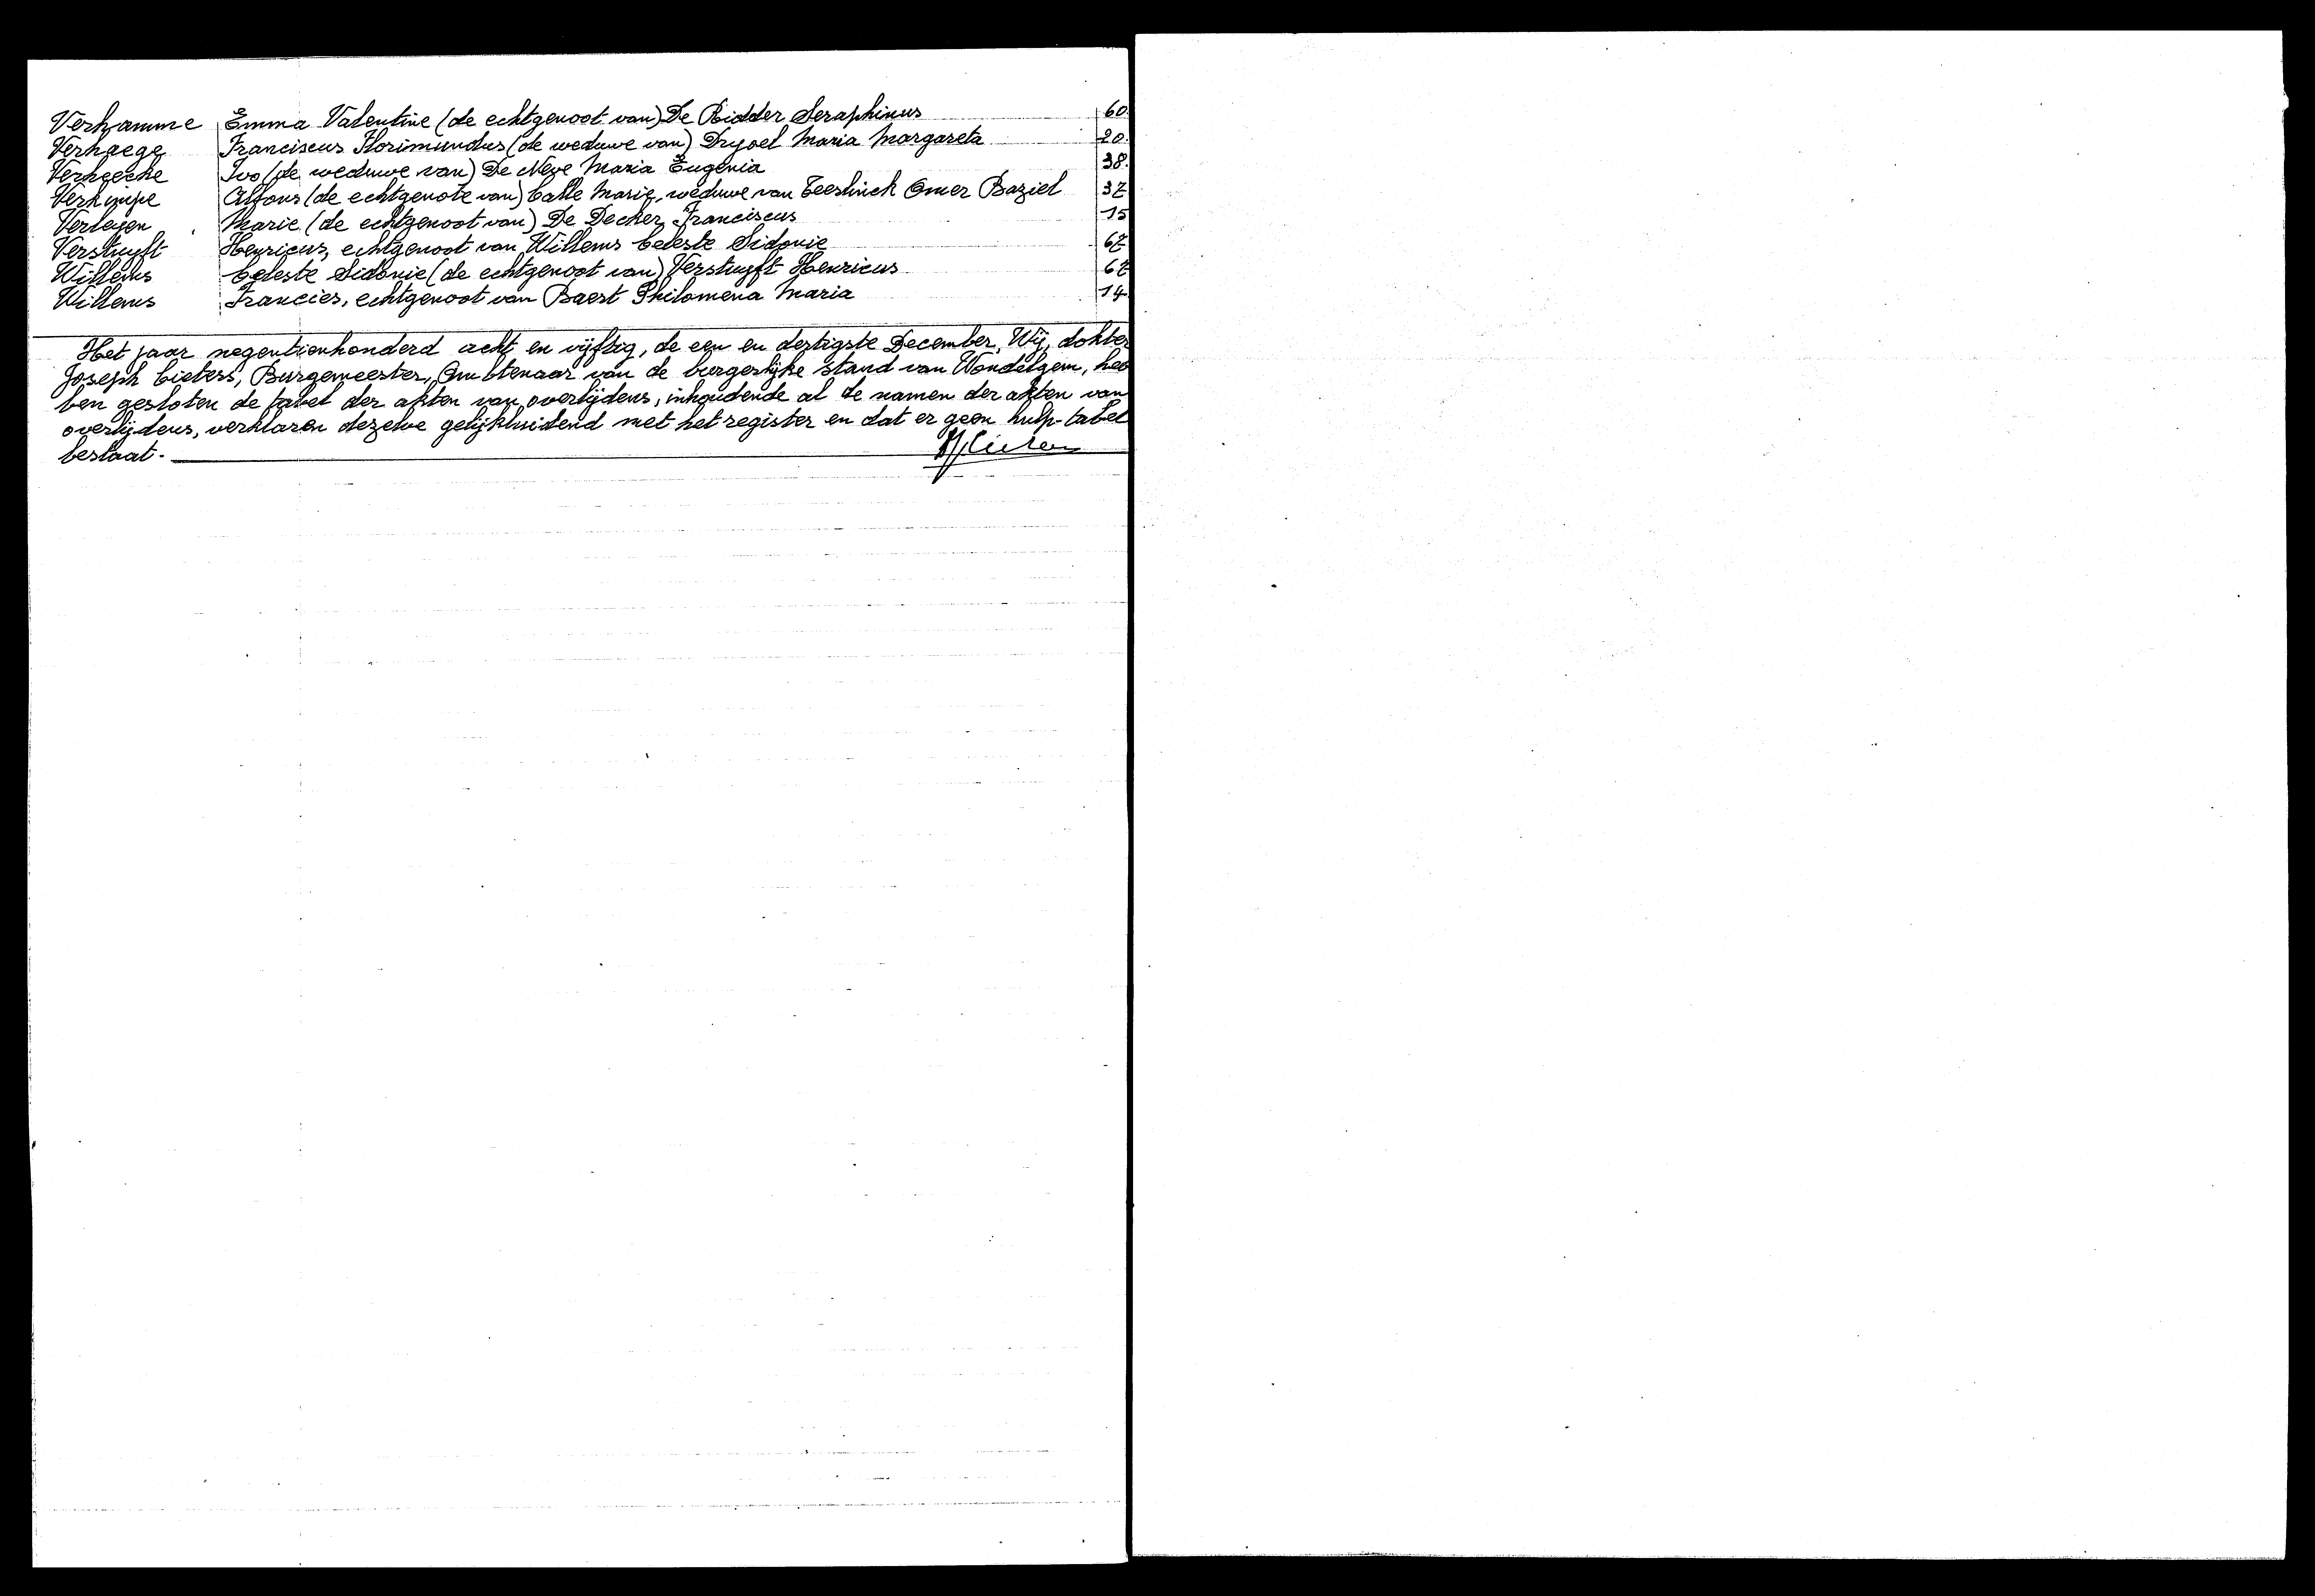 Verhamme Emma Valentine (de echtgenoot van) De Ridder Seraphinus 60
Verhaege Franciscus Florimundus (de weduwe van) Dryoel Maria Margareta 20
Verheecke Ivo (de weduwe van) De Neve Maria Eugenia 38
Verknippe Alfons (de echtgenote van) Calle Marie, weduwe van Teeslinck Omer Baziel 37
Verleyen Marie (de echtgenoot van) De Decker Franciscus 15
Verstuyft Henricus, echtgenoot van Willems Celeste Sidonie 67
Willems Celeste Sidonie (de echtgenoot van) Verstuyft Henricus 67
Willems Francies, echtgenoot van Baert Philomena Maria 14
Het jaar negentienhonderd acht en vijftig, de een en dertigste December, Wij, dokter
Joseph Cieters, Burgemeester, Ambtenaar van de burgerlijke stand van Wondelgem, heb
ben gesloten de tabel der akten van overlijdens, inhoudende al de namen der akten van
overlijdens, verklaren dezelve gelijkluidend met het register en dat er geen hulp-tabel
bestaat.